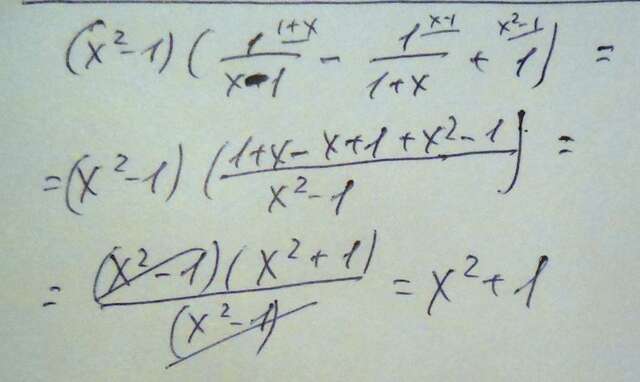 (x²-1)(1/(x-1)^(1+x) - 1/(1+x)^(x-1) + 1^(x²-1)) =
=(x²-1)((1+x-x+1+x²-1)/(x²-1)) =
= (x²-1)(x²+1)/(x²-1) = x²+1